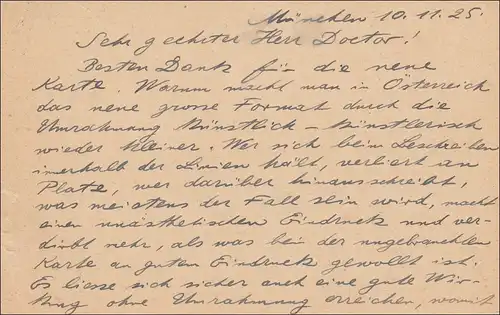 München 10.11.25.
Sehr geehrter Herr Doctor!
Besten Dank für die neue
Karte. Warum macht man in Österreich
das neue grosse Format durch die
Umrahmung künstlich – künstlerisch
wieder kleiner. Wer sich beim Beschreiben
innerhalb der Linien hält, verliert an
Platz, wer darüber hinausschreibt,
was meistens der Fall sein wird, macht
einen unästhetischen Eindruck und ver-
dirbt mehr, als was bei der ungebrauchten
Karte an guten Eindruck gewollt ist.
Es liesse sich sicher auch eine gute Wir-
kung ohne Umrahmung erreichen, womit